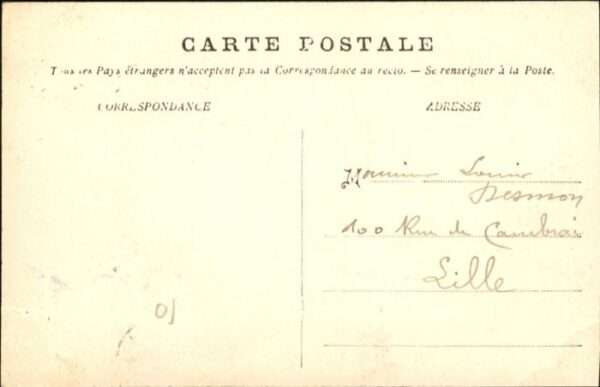 CARTE POSTALE
Tous les Pays étrangers n'acceptent pas la Correspondance au recto. — Se renseigner à la Poste.
CORRESPONDANCE
ADRESSE
Monsieur Louis
100 Rue de Cambrai
Lille